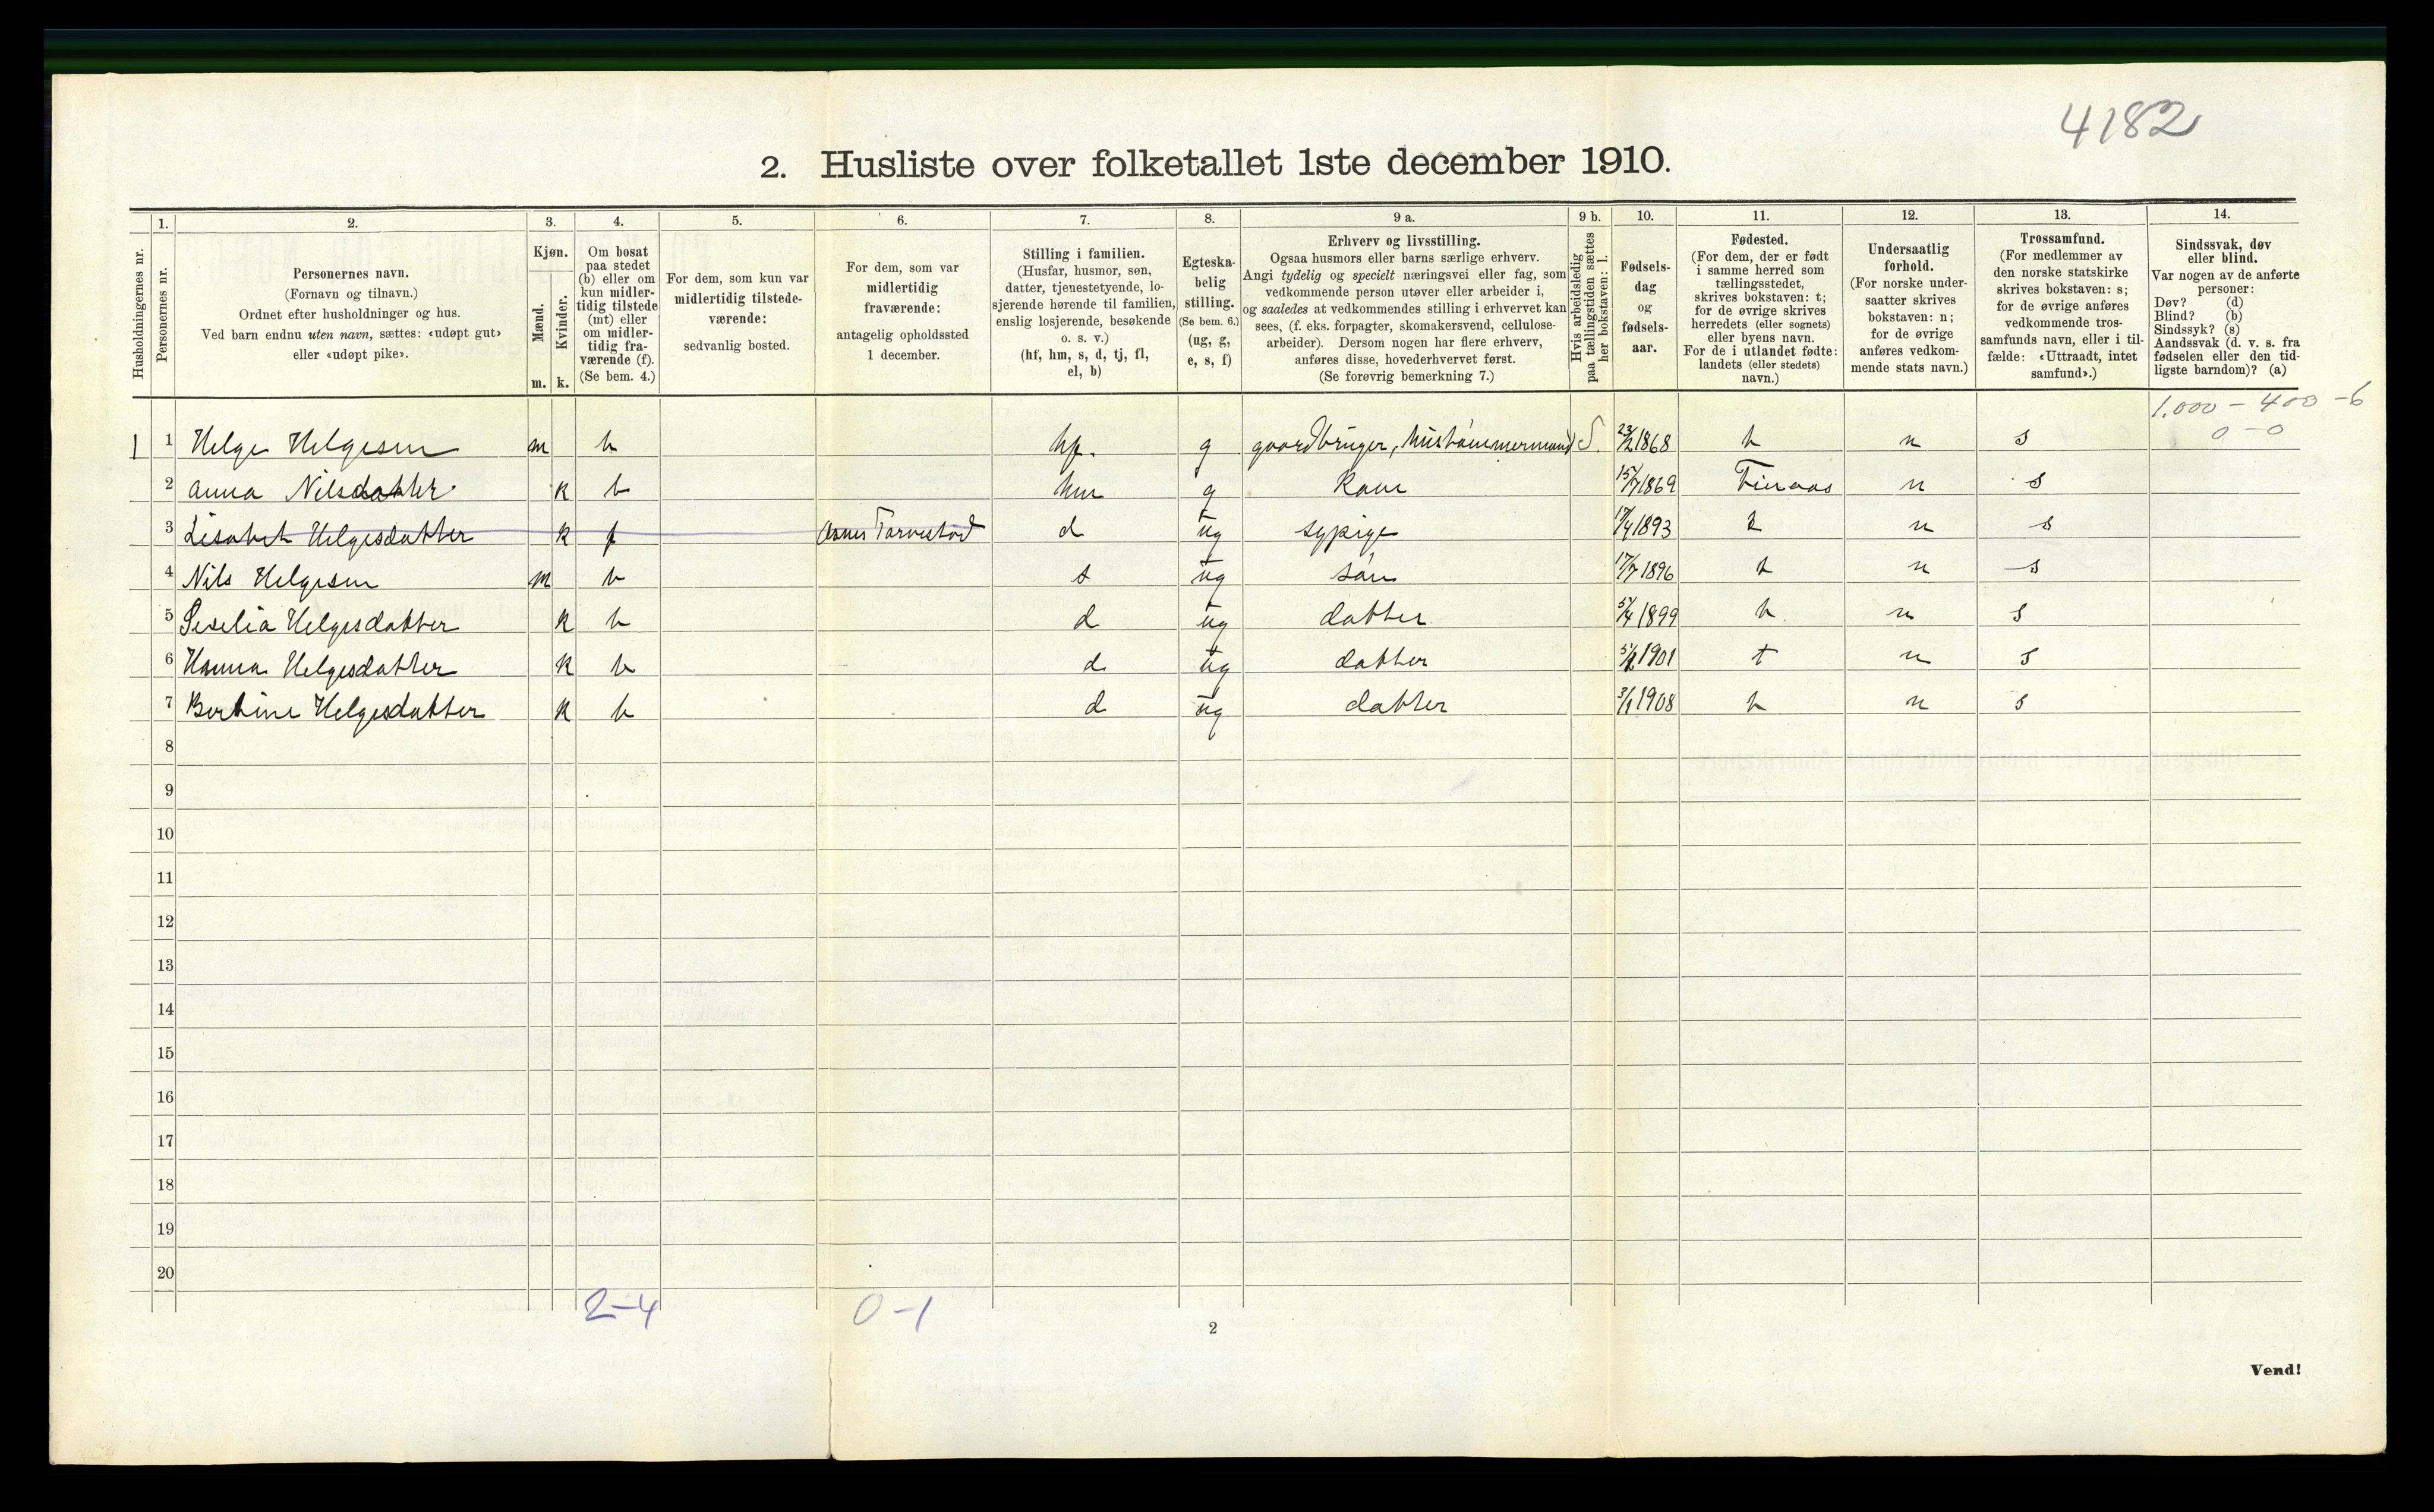 4182
2. Husliste over folketallet 1ste december 1910.
Husholdningernes nr.
1.
Personernes nr.
2.
Personernes navn.
(Fornavn og tilnavn.)
Ordnet efter husholdninger og hus.
Ved barn endnu uten navn, sættes: «udøpt gut»
eller «udøpt pike».
3.
Kjøn.
Mænd.
Kvinder.
m. k.
4.
Om bosat
paa stedet
(b) eller om
kun midler-
tidig tilstede
(mt) eller
om midler-
tidig fra-
værende (f).
(Se bem. 4.)
5.
For dem, som kun var
midlertidig tilstede-
værende:
sedvanlig bosted.
6.
For dem, som var
midlertidig
fraværende:
antagelig opholdssted
1 december.
7.
Stilling i familien.
(Husfar, husmor, søn,
datter, tjenestetyende, lo-
sjerende hørende til familien,
enslig losjerende, besøkende
o. s. v.)
(hf, hm, s, d, tj, fl,
el, b)
8.
Egteska-
belig
stilling.
(Se bem. 6.)
(ug, g,
e, s, f)
9 a.
Erhverv og livsstilling.
Ogsaa husmors eller barns særlige erhverv.
Angi tydelig og specielt næringsvei eller fag, som
vedkommende person utøver eller arbeider i,
og saaledes at vedkommendes stilling i erhvervet kan
sees, (f. eks. forpagter, skomakersvend, cellulose-
arbeider). Dersom nogen har flere erhverv,
anføres disse, hovederhvervet først.
(Se forøvrig bemerkning 7.)
9 b.
Hvis arbeidsledig
paa tællingstiden sættes
her bokstaven: l.
10.
Fødsels-
dag
og
fødsels-
aar.
11.
Fødested.
(For dem, der er født
i samme herred som
tællingsstedet,
skrives bokstaven: t;
for de øvrige skrives
herredets (eller sognets)
eller byens navn.
For de i utlandet fødte:
landets (eller stedets)
navn.)
12.
Undersaatlig
forhold.
(For norske under-
saatter skrives
bokstaven: n;
for de øvrige
anføres vedkom-
mende stats navn.)
13.
Trossamfund.
(For medlemmer av
den norske statskirke
skrives bokstaven: s;
for de øvrige anføres
vedkommende tros-
samfunds navn, eller i til-
fælde: «Uttraadt, intet
samfund».)
14.
Sindssvak, døv
eller blind.
Var nogen av de anførte
personer:
Døv? (d)
Blind? (b)
Sindssyk? (s)
Aandssvak (d. v. s. fra
fødselen eller den tid-
ligste barndom)? (a)
1.000 - 400 - 6
0 - 0
1 1 Helge Helgesen m b hf. g gaardbruger, hustømmermand S. 1868 t n s
2 Anna Nilsdatter k b hm g Kone 15/7 1869 Finaas n s
3 Lisabet Helgesdatter k f d ug sypige 17/4 1893 t n s
4 Nils Helgesen m b s ug søn 17/7 1896 t n s
5 Seselia Helgesdatter k b d ug datter 5/4 1899 t n s
6 Hanna Helgesdatter k b d ug datter 1901 t n s
7 Bertine Helgesdatter k b d ug datter 3/1 1908 t n s
8
9
10
11
12
13
14
15
16
17
18
19
20
2-4 0-1
2
Vend!